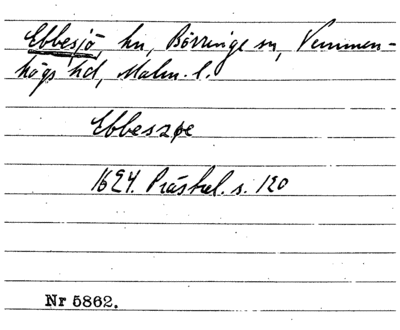 Ebbesjö, hn, Börringe sn, Vemmen-
högs hd, Malm. l.
Ebbeszøe
1624. Prästrel. s. 120
Nr 5862.